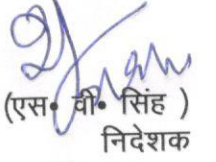 (एस॰ वी॰ सिंह )
निदेशक